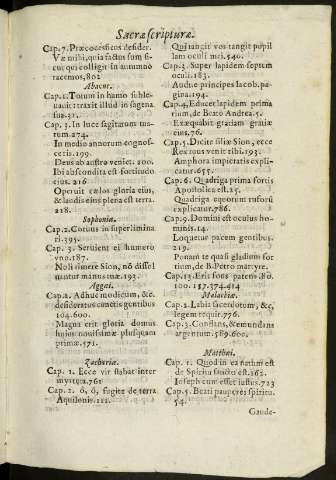 Sacræ scripturæ.
Cap. 7. Præcoces ficus desider.
Væ mihi, quia factus sum si-
cut qui colligit in autumno
racemos, 802
Abacuc.
Cap. 1. Totum in hamo suble-
uauit: traxit illud in sagena
sua. 31.
Cap. 3. In luce sagittarum tua-
rum. 274.
In medio annorum cognos-
ceris. 199.
Deus ab austro veniet. 200.
Ibi abscondita est fortitudo
eius. 216
Operuit cælos gloria eius,
& laudis eius plena est terra.
218.
Sophoniæ.
Cap. 2. Coruus in superlimina
ri. 395.
Cap. 3. Seruient ei humero
vno. 187.
Noli timere Sion, nō dissol
uantur manus tuæ. 193.
Aggæi.
Cap. 2. Adhuc modicum, &c.
desideratus cunctis gentibus
104. 600.
Magna erit gloria domus
huius nouissimæ plusquam
primæ. 571.
Zachariæ.
Cap. 1. Ecce vir stabat inter
myrteta. 761
Cap. 2. ô, ô, fugite de terra
Aquilonis. 112.
Qui tangit vos tangit pupil
lam oculi mei. 540.
Cap. 3. Super lapidem septem
oculi. 183.
Audi e principes Iacob. pa-
gina. 194.
Cap. 4. Educet lapidem prima
rium, de Beato Andrea. 5.
Exæquabit gratiam gratiæ
eius. 76.
Cap. 5. Dicite filiæ Sion, ecce
Rex tuus venit tibi. 193.
Amphora impietatis expli-
catur. 655.
Cap. 6. Quadriga prima fortis
Apostolica est. 25.
Quadriga equorum ruforū
explicatur. 786.
Cap. 9. Domini est oculus ho-
minis. 14.
Loquetur pacem gentibus.
219.
Ponam te quasi gladium for
tium, de B. Petro martyre.
Cap. 13. Erit fons patens &c.
100. 157. 374. 414
Malachiæ.
Cap. 2. Labia sacerdotum, &c,
legem requir. 776.
Cap. 3. Conflans, & emundans
argentum. 589. 600.
Matthæi.
Cap. 1. Quod in ea natum est
de Spiritu sancto est. 162.
Ioseph cum esset iustus. 723
Cap. 5. Beati pauperes spiritu.
54.
Gaude-